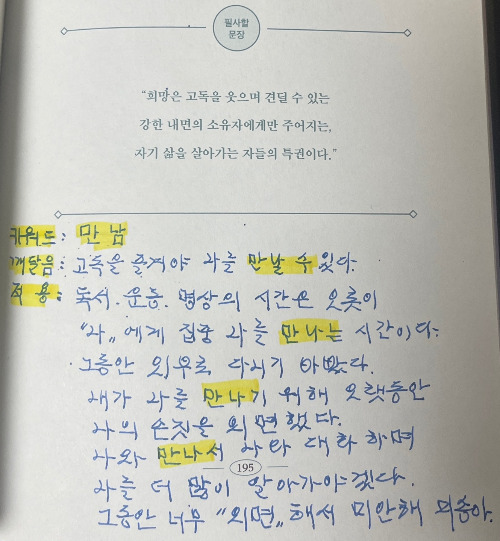 필사할
문장
“희망은 고독을 웃으며 견딜 수 있는
강한 내면의 소유자에게만 주어지는,
자기 삶을 살아가는 자들의 특권이다.”
키워드 : 만남
깨달음 : 고독을 즐겨야 나를 만날 수 있다.
적용 : 독서. 운동. 명상의 시간은 오롯이
“나„에게 집중 나를 만나는 시간이다.
그동안 외부로 다니기 바빴다.
내가 나를 만나기 위해 오랫동안
나의 손짓을 외면했다.
나와 만나서 나와 대화 하면
195
나를 더 많이 알아가야겠다.
그동안 너무 “외면„해서 미안해